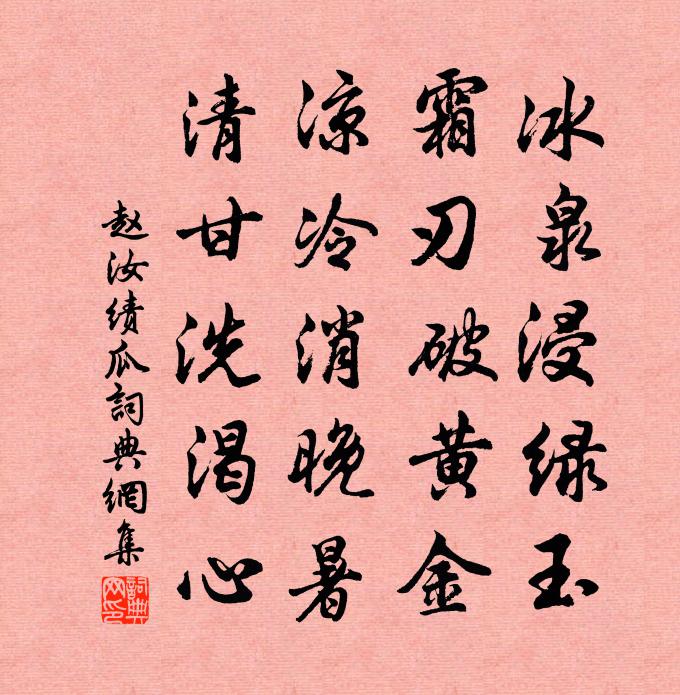 冰泉浸绿玉
霜刃破黄金
凉冷消晚暑
清甘洗渴心
赵汝绩瓜詞典網集
詞典网印